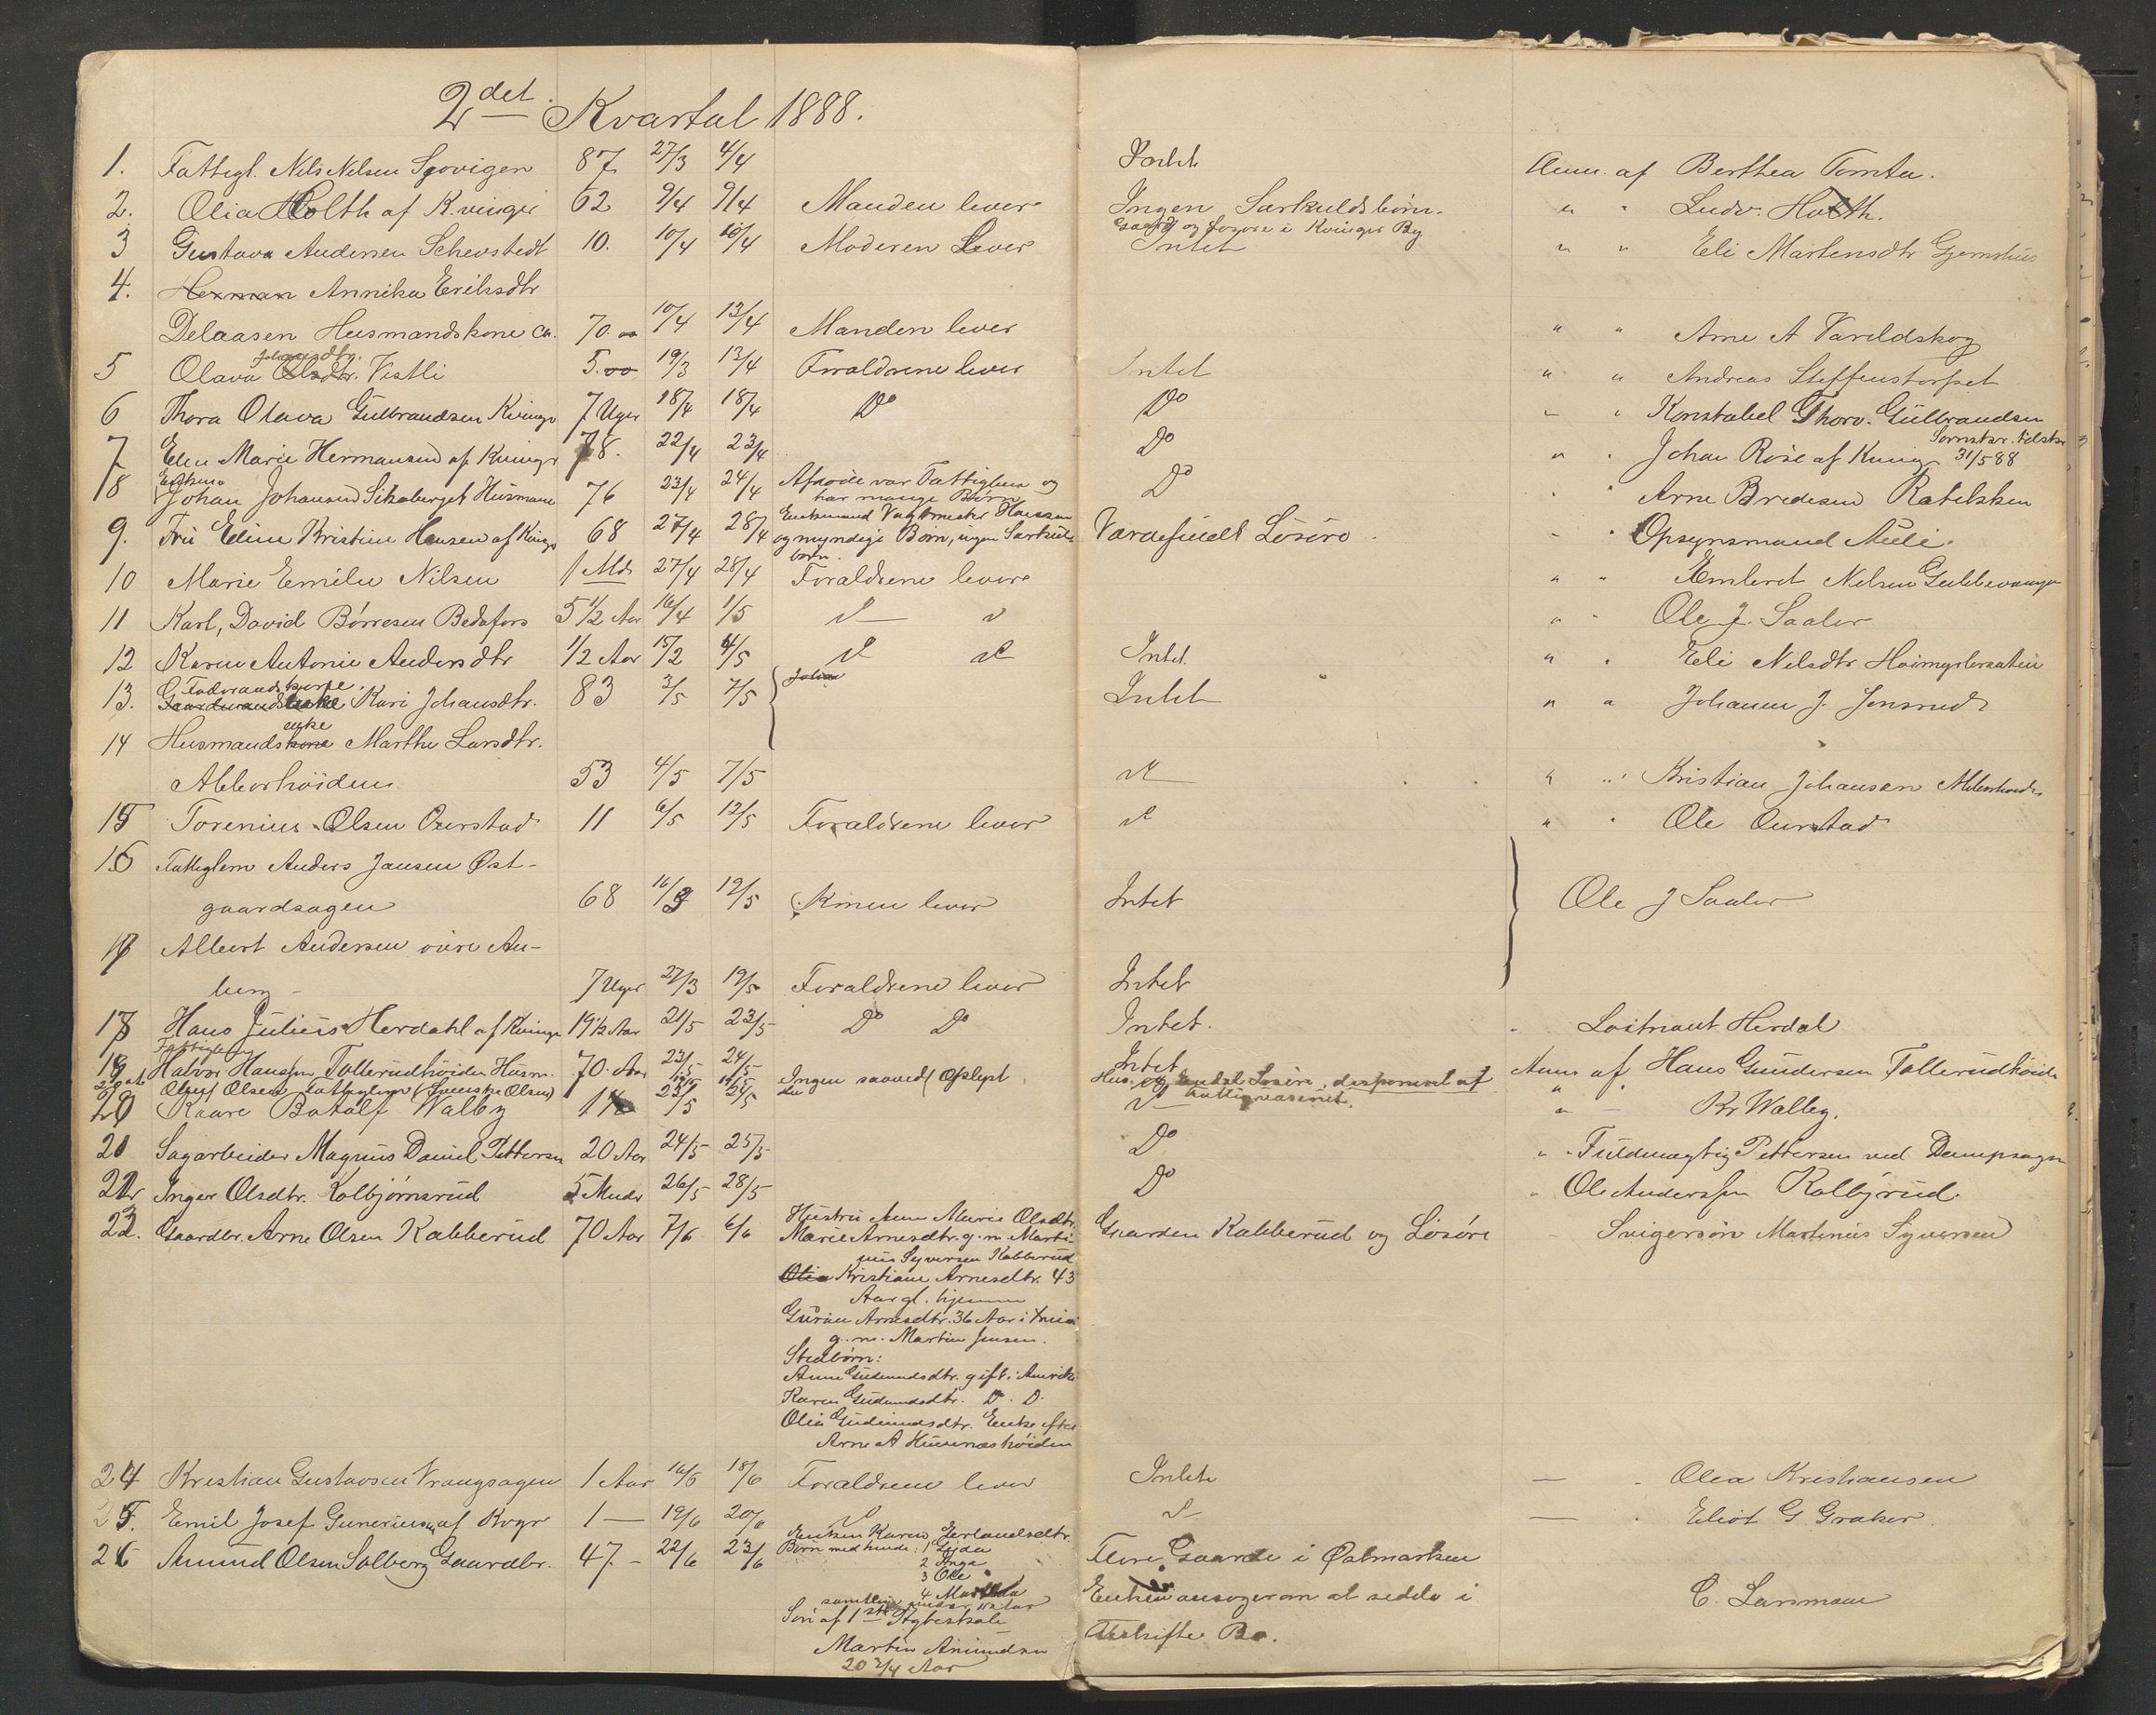 2det Kvartal 1888.
1. Fattigl. Nils Nilsen 87 27/3 4/4 Intet Anm. af Berthea Tomta.
2. Olia Holth af K.vinger 62 9/4 9/4 Manden lever Ingen Særkuldsbørn. " " Ludv. Holth.
Gaard og Løsøre i Kvinger By
3 Gustava Andersen 10. 10/4 10/4 Moderen Lever Intet " " Eli Martensdtr
4. Herman Annika Eriksdtr
Delaasen Husmandskone ca. 70.00 10/4 13/4 Manden lever " " Arne A Varaldskog
Johansdtr.
5 Olava Olsdtr. Vestli 5.00 19/3 13/4 Forældrene lever Intet " " Andreas
6 Thora Olava Gulbrandsen Kvinger 7 Uger 18/4 18/4 Do Do " " Konstabel Thorv. Gulbrandsen
7 Elen Marie Hermansen af Kvinger 78. 22/4 23/4 Do " " Johan Rose af Kving 31/5 88
Enkem.
8 Johan Johansen Sikaberget Husmand 76 23/4 24/4 Afdøde var Fattiglem og har mange Børn Do " " Arne Bredesen
9. Fru Eline Kristine Hansen af Kvingr 68 27/4 28/4 Enkemand Vagtmester Hansen og myndige Børn, ingen Særkulds børn. Værdifuldt Løsøre. " " Opsynsmand
10 Marie Emilie Nilsen 1 Md. 27/4 28/4 Forældrene lever " " Nilsen
11 Karl, David Børresen Bedafors 5 1/2 Aar 16/4 1/5 " " Ole J. Saaler
12 Karen Antonie Andersdtr 1/2 Aar 15/2 4/5 Intet. " " Eli Nilsdtr
Foderaadskone
13. Gaardmandsenke Kari Johansdtr. 83 3/5 7/5 Intet " " Johannes J. Jonsrud
enke
14 Husmandskone Marthe Larsdtr.
Abborhöiden 53 4/5 7/5 " " Kristian Johansen Abborhöiden
15 Torenius Olsen Overstad 11 6/5 12/5 Forældrene lever " " Ole Overstad
16 Fattiglem Anders Jansen Øst-
gaardsagen 68 16/3 12/5 Konen lever Intet Ole J Saaler
17 Albert Andersen övre Au-
berg 7 Uger 27/3 12/5 Forældrene lever Intet
18 Hans Julius Herdahl af Kvinger 19 1/2 Aar 21/5 23/5 Do Do Intet. " Loitnant Herdal
Fattiglem
19 Halvor Hansen Tallerudhöiden Husm. 70. Aar 23/5 24/5 Ingen saavidt oplyst Intet Anm af Hans Gundersen Tallerudhöiden
Olsen Fattiglem (Svenske Olsen) Hus. og Løsøre, disponeret af Fattigvæsenet.
20 Kaare Botolf Walby 1 23/5 24/5 " Kr Walby.
21 Sagarbeider Magnus Daniel Pettersen 20 Aar 24/5 25/5 Do " Fuldmægtig Pettersen ved Dampsagen
22 Inger Olsdtr. Kolbjørnsrud 5 Mndr 26/5 28/5 Do " Ole Anderssen Kolbjrud.
23. Gaardbr. Arne Olsen Kabberud 70 Aar 7/6 6/6 Hustru Anne Marie Olsdtr. Gaarden Kabberud og Løsøre Svigersøn Martinius Syversen
Marie Arnesdtr. g. m. Martinius Syversen Kabberud
Olia Kristiane Arnesdtr. 43
Aar gl. hjemme
Gurine Arnesdtr. 36 Aar i
g. m. Martin Jensen.
Stedbørn:
Anne Gudmundsdtr. gift i Amerika
Karen Gudmundsdtr. D. D.
Olia Gudmundsdtr. Enke efter
Arne A
24 Kristian Gustavsen Vrangsagen 1 Aar 16/6 18/6 Forældrene lever Intet — " Olea Kristiansen
25. Emil Josef Guneriusen af Kvgr 1 — 19/6 20/6 — " Eliot G Graker
26 Amund Olsen Solberg Gaardbr. 47 — 22/6 23/6 Enken Karen Erlandsdtr. Flere Gaarde i Østmarken
Børn med hende: 1
2 Inga
3 Ole
4 Mathilda Enken ansøger om at sidde i C. Lansmann
samtlige under Aar
Søn af 1ste Ægteskab Uskifte Bo.
Martin Amundsen
20 3/4 Aar